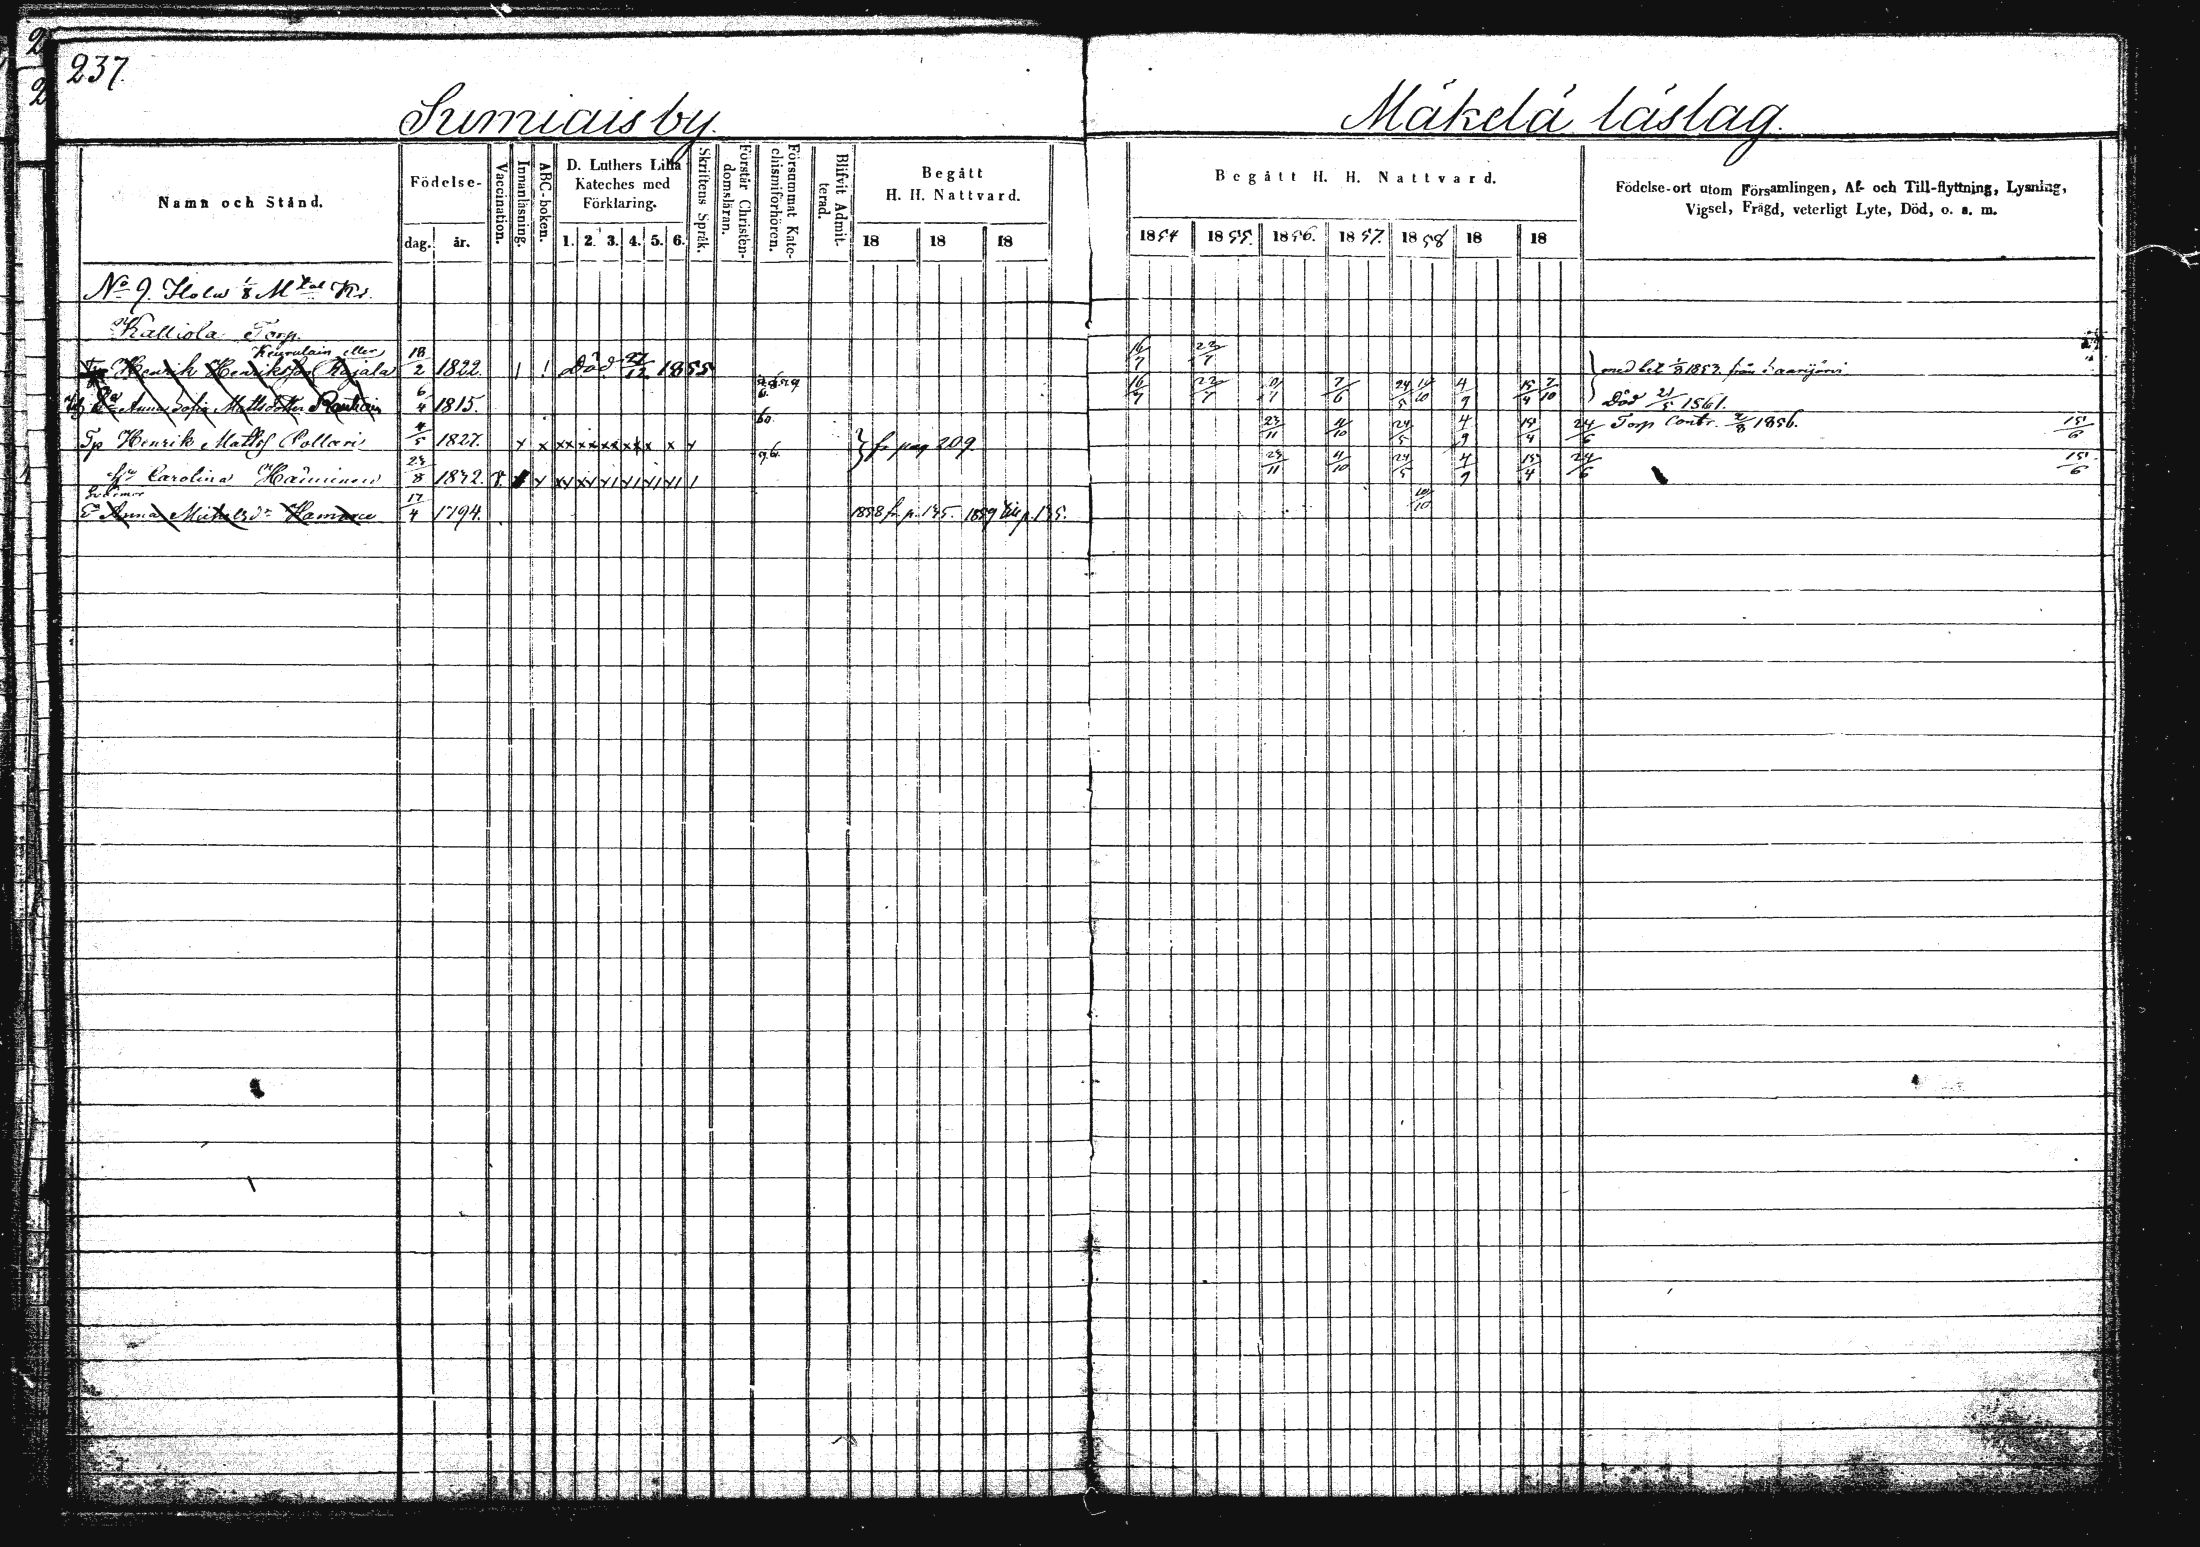 237.
Sumiais by.
Mäkelä läslag.
Namn och Stånd.
Födelse-
dag. år.
Vaccination.
Innanläsning.
ABC-boken.
D. Luthers Lilla Kateches med Förklaring.
1. 2. 3. 4. 5. 6.
Skriftens Språk.
Förstår Christendomsläran.
Försummat Katechismiförhören.
Blifvit Admitterad.
Begått H. H. Nattvard.
18 18 18
Begått H. H. Nattvard.
1854 1855. 1856. 1857. 1858 18 18
Födelse-ort utom Församlingen, Af- och Till-flyttning, Lysning,
Vigsel, Frägd, veterligt Lyte, Död, o. s. m.
No 9. Holm 1/8 Mtal Kr.
Kalliola Torp.
eller
Henrik Henriksson Rajala 18/2 1822. Död 27/12 1855 16/7 22/7 med bet 1853. från Saarijärvi
Anna Sofia Mattsdotter Rautiain 6/4 1815. 16/7 22/7 7/6 24/5 4/9 15/4 7/10 Död 21/5 1861.
60.
Tp Henrik Mattss Pollari 4/5 1827. x x xx xx xx xx x x x } fr pag 209. 23/11 11/10 24/5 4/9 15/4 24/6 Torp Contr. 2/8 1856. 15/6
Carolina Häninen 23/8 1832. v. 23/11 11/10 24/5 4/9 15/4 24/6 15/6
Anna 17/4 1794. 1858 fr p. 135. 1859 till p. 135.